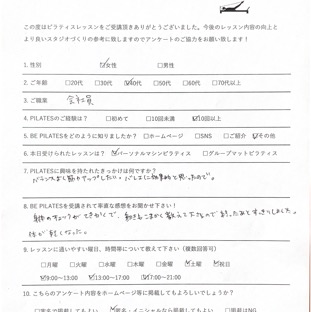 この度はピラティスレッスンをご受講頂きありがとうございました。今後のレッスン内容の向上と
より良いスタジオづくりの参考に致しますのでアンケートのご協力をお願い致します！
1. 性別 ☑女性 □男性
2. ご年齢 □20代 □30代 ☑40代 □50代 □60代 □70代以上
3. ご職業 会社員
4. PILATESのご経験は？ □初めて □10回未満 ☑10回以上
5. BE PILATESをどのように知りましたか？ □ホームページ □SNS □ご紹介 ☑その他
6. 本日受けられたレッスンは？ ☑パーソナルマシンピラティス □グループマットピラティス
7. PILATESに興味を持たれたきっかけは何ですか？
8. BE PILATESを受講されて率直な感想をお聞かせ下さい！
9. レッスンに通いやすい曜日、時間等について教えて下さい（複数回答可）
□月曜 □火曜 □水曜 □木曜 □金曜 ☑土曜 ☑祝日
☑9:00～13:00 ☑13:00～17:00 ☑17:00～21:00
10. こちらのアンケート内容をホームページ等に掲載してもよろしいでしょうか？
□実名で掲載してもよい ☑匿名・イニシャルなら掲載してもよい □掲載はNG